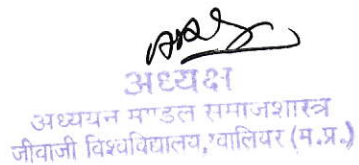 अध्यक्ष
अध्ययन मण्डल समाजशास्त्र
जीवाजी विश्वविद्यालय, ग्वालियर (म.प्र.)